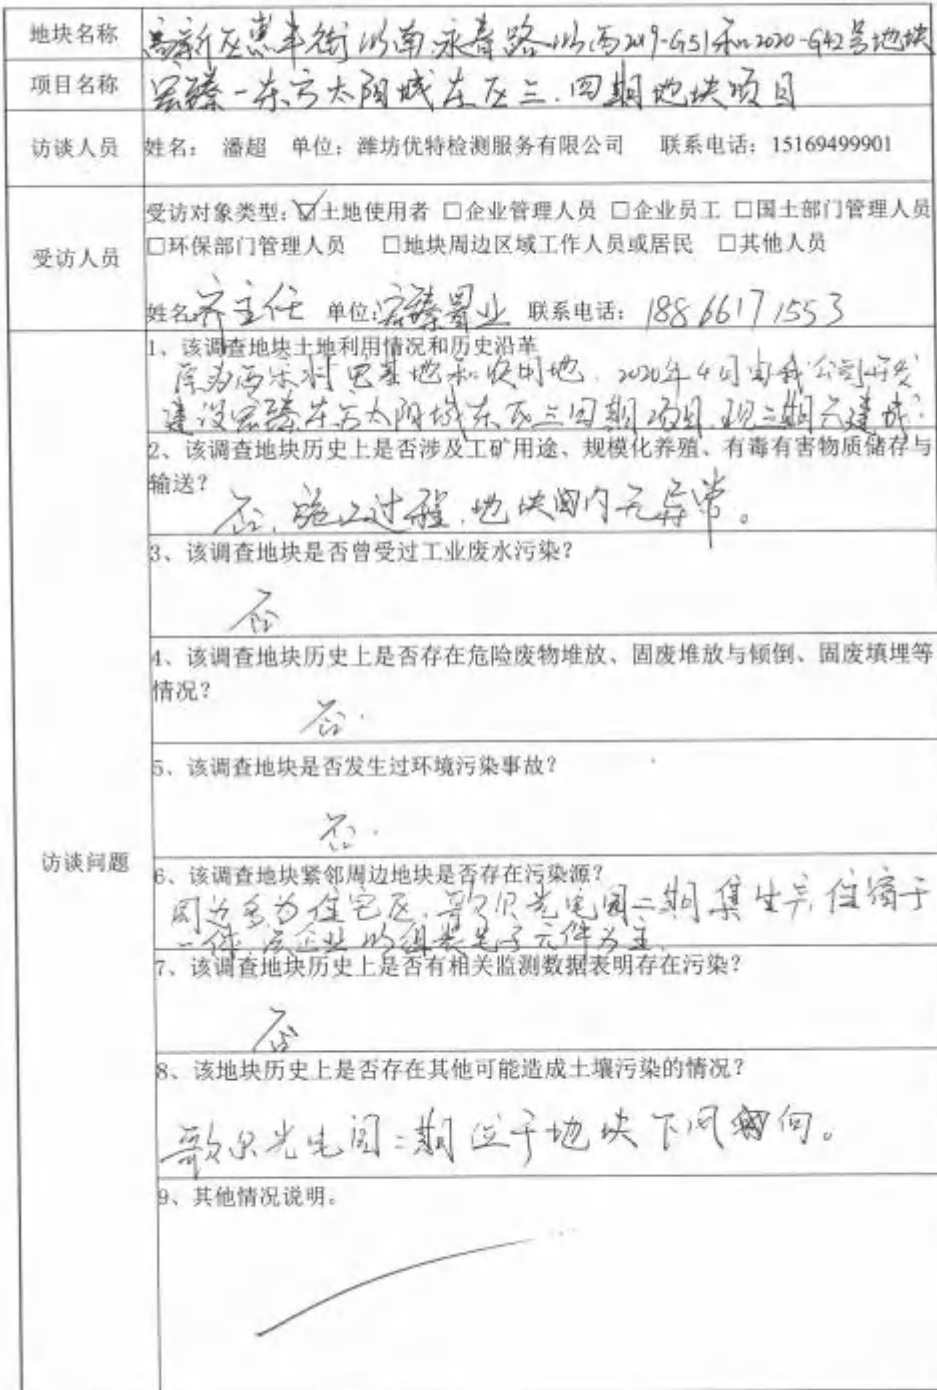 地块名称 高新区惠丰街以南,永春路以西2019-G51和2020-G42号地块
项目名称 宏臻-东方太阳城东区三.四期地块项目
访谈人员 姓名: 潘超 单位: 潍坊优特检测服务有限公司 联系电话: 15169499901
受访对象类型: ☑土地使用者 □企业管理人员 □企业员工 □国土部门管理人员
□环保部门管理人员 □地块周边区域工作人员或居民 □其他人员
受访人员
姓名 齐主任 单位: 宏臻置业 联系电话: 18866171553
访谈问题
1、该调查地块土地利用情况和历史沿革
原为西乐村宅基地和农用地.2020年4月由我公司开发
建设宏臻东方太阳城东区三四期项目,现三期已建成.
2、该调查地块历史上是否涉及工矿用途、规模化养殖、有毒有害物质储存与
输送?
否.施工过程.地块内无异常。
3、该调查地块是否曾受过工业废水污染?
否
4、该调查地块历史上是否存在危险废物堆放、固废堆放与倾倒、固废填埋等
情况?
否.
5、该调查地块是否发生过环境污染事故?
否.
6、该调查地块紧邻周边地块是否存在污染源?
周边多为住宅区.歌尔光电园二期集生产,住宿于
一体,该企业以组装电子元件为主.
7、该调查地块历史上是否有相关监测数据表明存在污染?
否
8、该地块历史上是否存在其他可能造成土壤污染的情况?
歌尔光电园二期位于地块下风向。
9、其他情况说明。